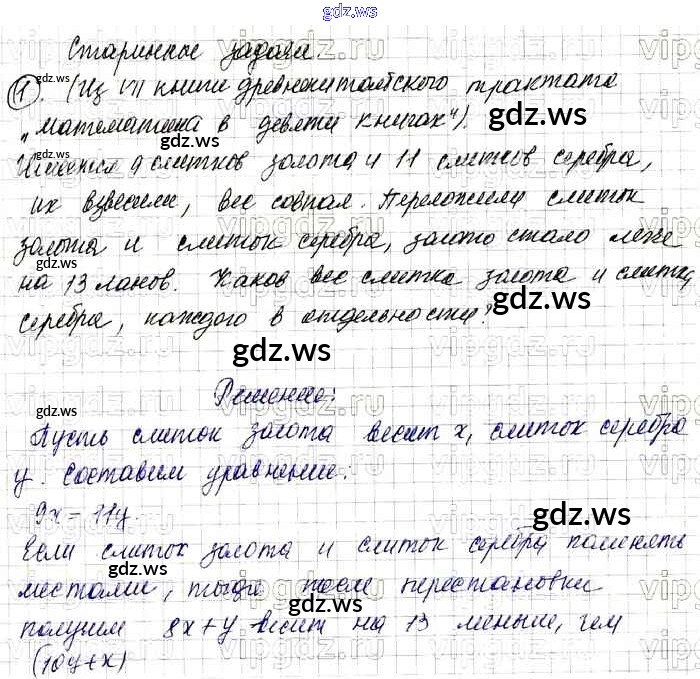 gdz.ws
Старинные задачи
1. (Из VII книги древнекитайского трактата
„Математика в девяти книгах").
Имеется 9 слитков золота и 11 слитков серебра,
их взвесили, вес совпал. Переложили слиток
золота и слиток серебра, золото стало легче
на 13 ланов. Каков вес слитка золота и слитка
серебра, каждого в отдельности?
Решение:
Пусть слиток золота весит x, слиток серебра
y. Составим уравнение:
9x = 11y.
Если слиток золота и слиток серебра поменять
местами, тогда после перестановки
получим 8x + y весит на 13 меньше, чем
(10y + x)